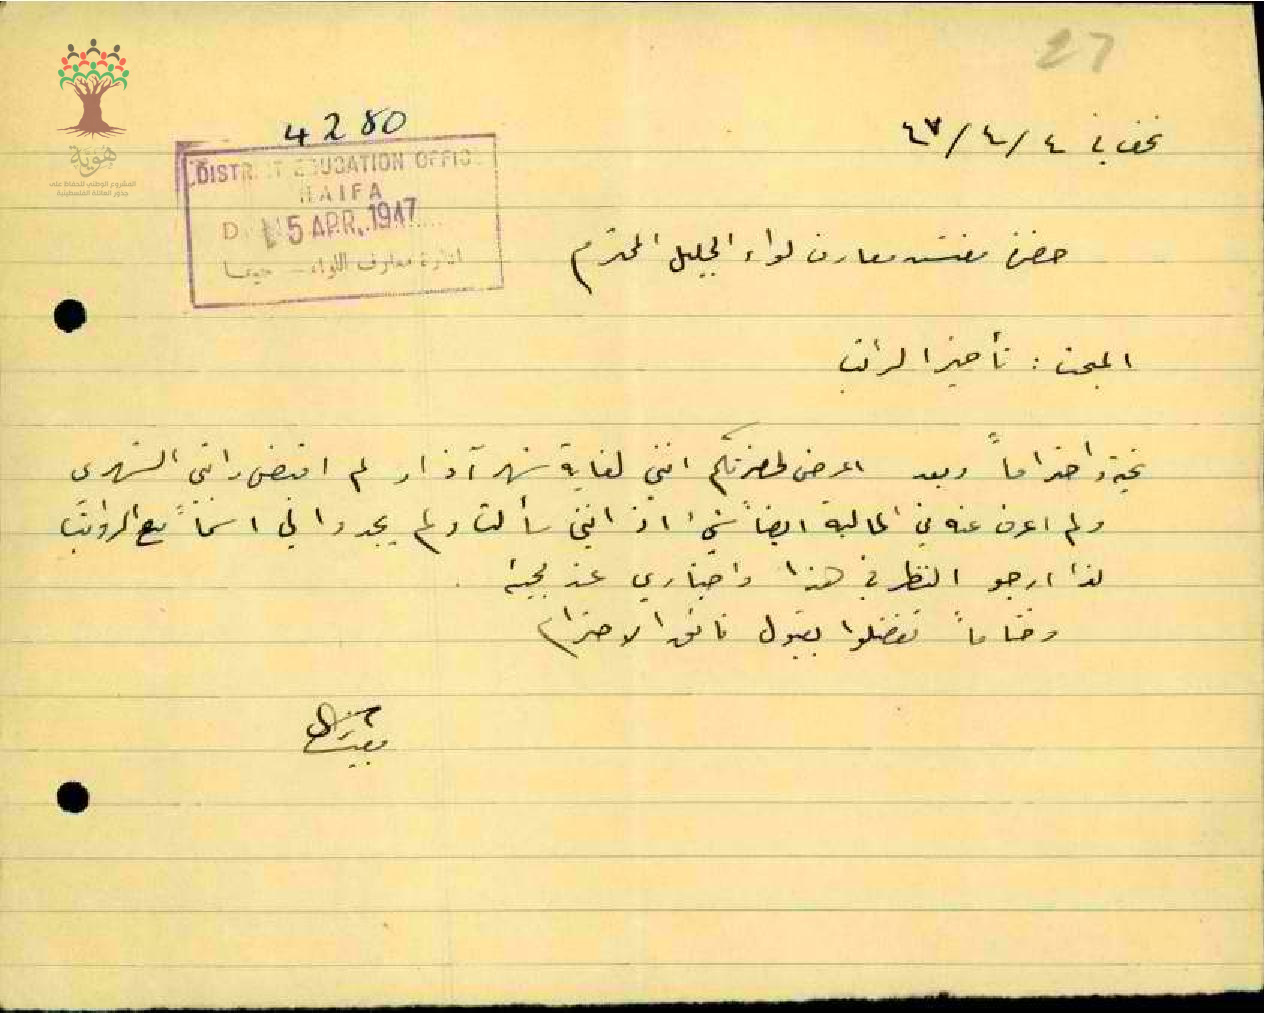 27
4280
نحف في ٤/٤/٤٧
هوية
المشروع الوطني للحفاظ على
جذور العائلة الفلسطينية
DISTRICT EDUCATION OFFICE
HAIFA
5 APR. 1947
ادارة معارف اللواء - حيفا
حضرة مفتش معارف لواء الجليل المحترم
المبحث : تأخير الراتب
تحية واحتراماً وبعد اعرض لحضرتكم انني لغاية شهر آذار لم اقبض راتبي الشهري
ولم اعرف عنه في المالية ايضاً شيء اذ انني سألت ولم يجدوا لي اسماً مع الرواتب
لذا ارجو النظر في هذا واخباري عند
وختاماً تفضلوا بقبول فائق الاحترام